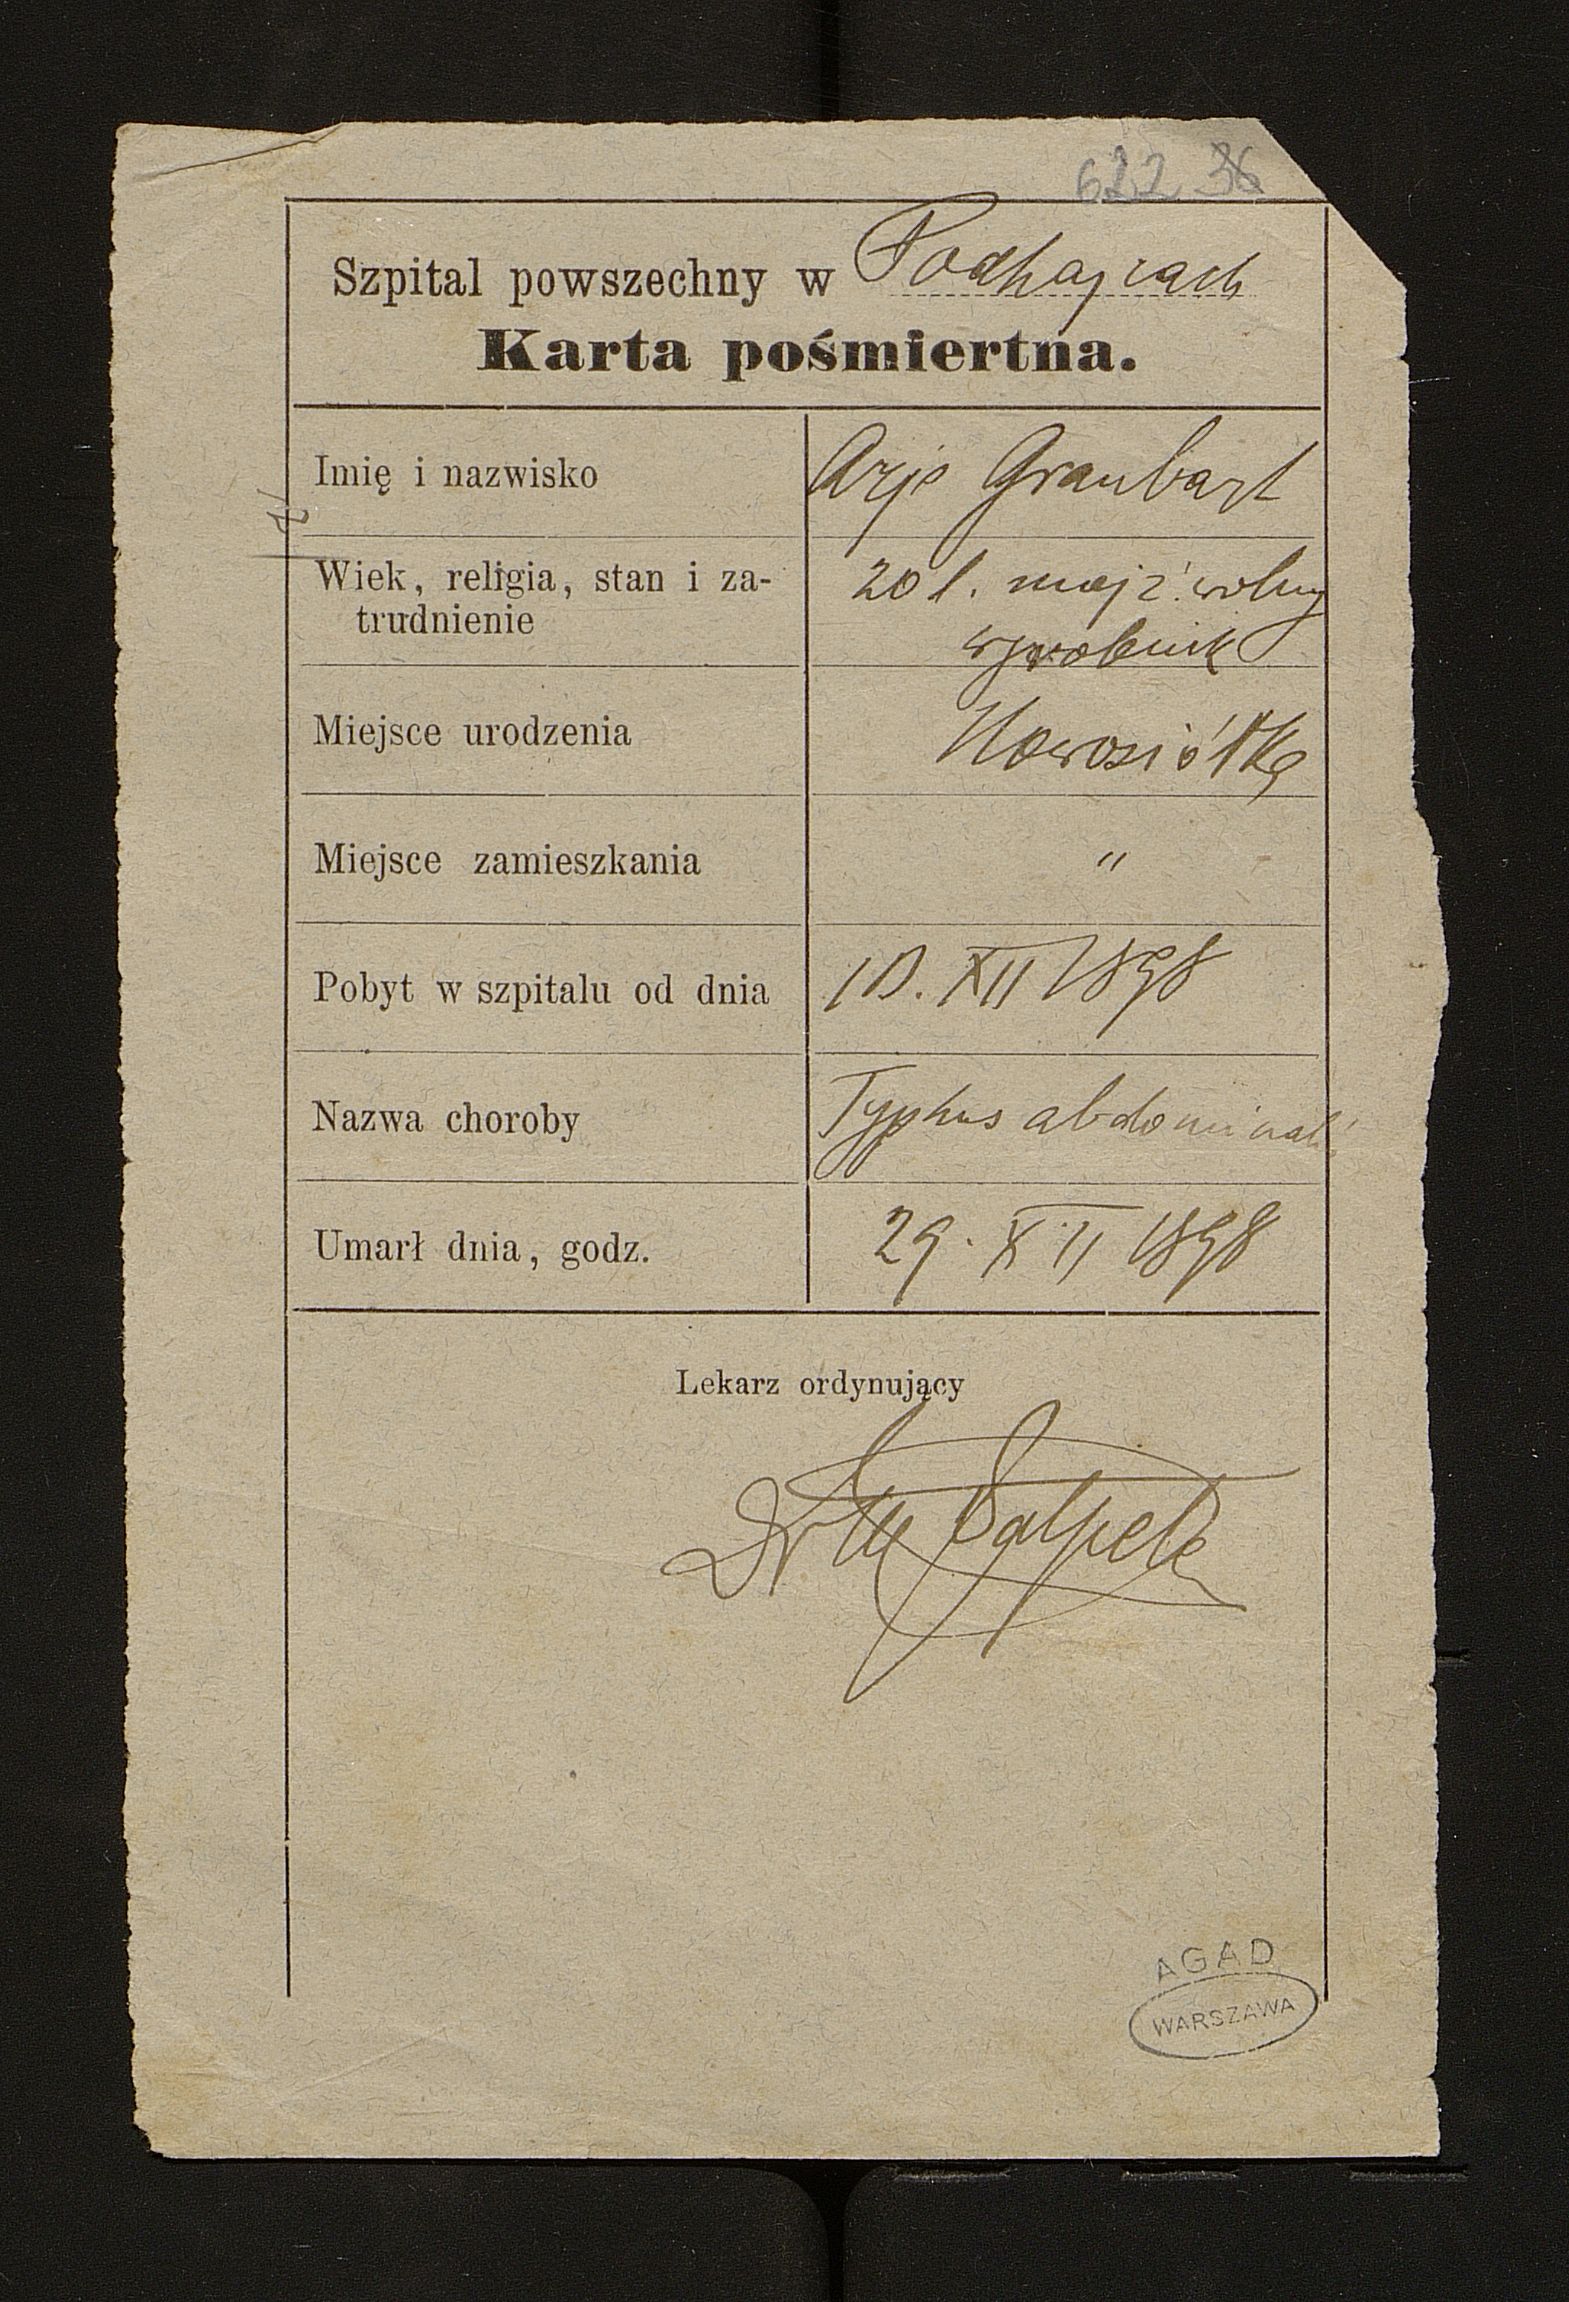 622 36
Szpital powszechny w Podhajcach
Karta pośmiertna.
Imię i nazwisko Arje Graubart
Wiek, religia, stan i za-
trudnienie 20 l. mojż. wolny
wyrobnik
Miejsce urodzenia Nowosiółka
Miejsce zamieszkania "
Pobyt w szpitalu od dnia 10. XII 1898
Nazwa choroby Typhus abdominalis
Umarł dnia, godz. 29. XII 1898
Lekarz ordynujący
Dr
AGAD
WARSZAWA